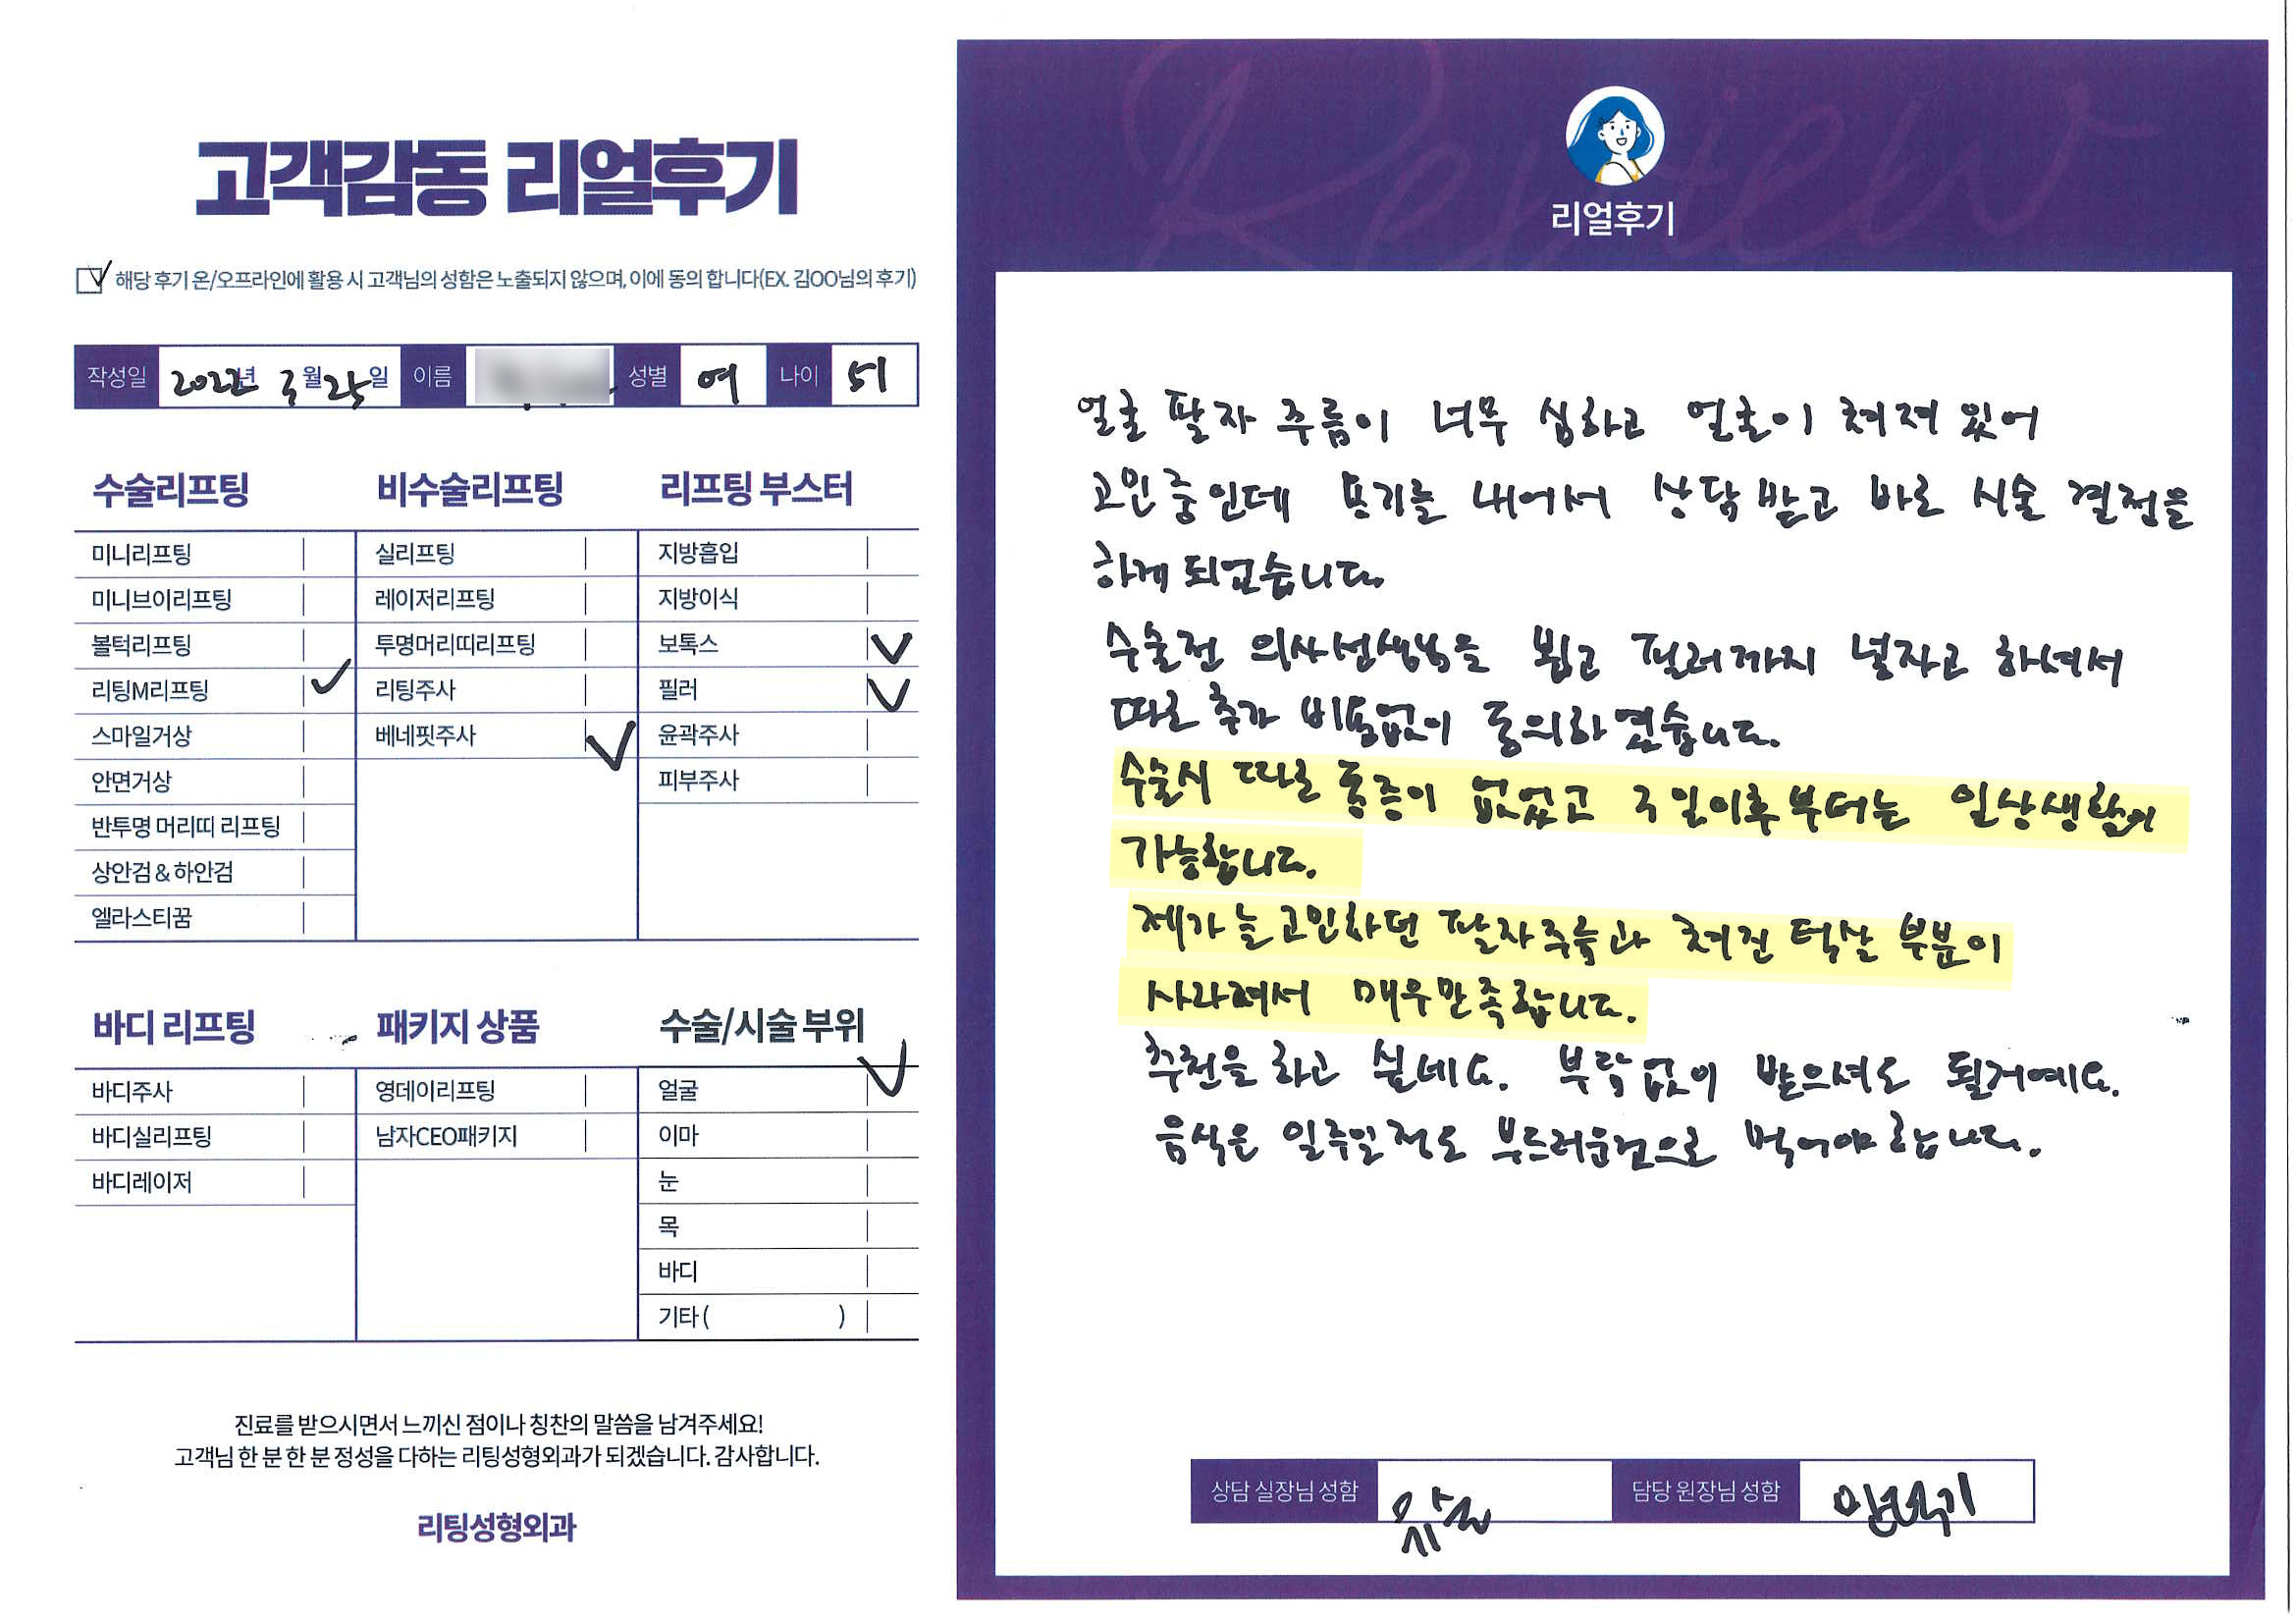 고객감동 리얼후기
해당 후기 온/오프라인에 활용 시 고객님의 성함은 노출되지 않으며, 이에 동의 합니다(EX. 김OO님의 후기)
작성일 2022년 3월 25일 이름 성별 여 나이 51
수술리프팅
미니리프팅
미니브이리프팅
볼턱리프팅
리팅M리프팅
스마일거상
안면거상
반투명 머리띠 리프팅
상안검 & 하안검
엘라스티꿈
비수술리프팅
실리프팅
레이저리프팅
투명머리띠리프팅
리팅주사
베네핏주사
리프팅 부스터
지방흡입
지방이식
보톡스
필러
윤곽주사
피부주사
바디 리프팅
바디주사
바디실리프팅
바디레이저
패키지 상품
영데이리프팅
남자CEO패키지
수술/시술 부위
얼굴
이마
눈
목
바디
기타 ( )
진료를 받으시면서 느끼신 점이나 칭찬의 말씀을 남겨주세요!
고객님 한 분 한 분 정성을 다하는 리팅성형외과가 되겠습니다. 감사합니다.
리팅성형외과
Review
리얼후기
얼굴 팔자 주름이 너무 심하고 얼굴이 쳐져 있어
고민중인데 용기를 내어서 상담 받고 바로 시술 결정을
하게 되었습니다.
수술전 의사선생님을 뵙고 필러까지 넣자고 하셔서
따로 추가 비용없이 동의하였습니다.
수술시 따로 통증이 없었고 3일이후부터는 일상생활이
가능합니다.
제가 늘 고민하던 팔자주름과 쳐진 턱살 부분이
사라져서 매우만족합니다.
추천을 하고 싶네요. 부담없이 받으셔도 될거예요.
음식은 일주일정도 부드러운것으로 먹어야 합니다.
상담 실장님 성함
담당 원장님 성함